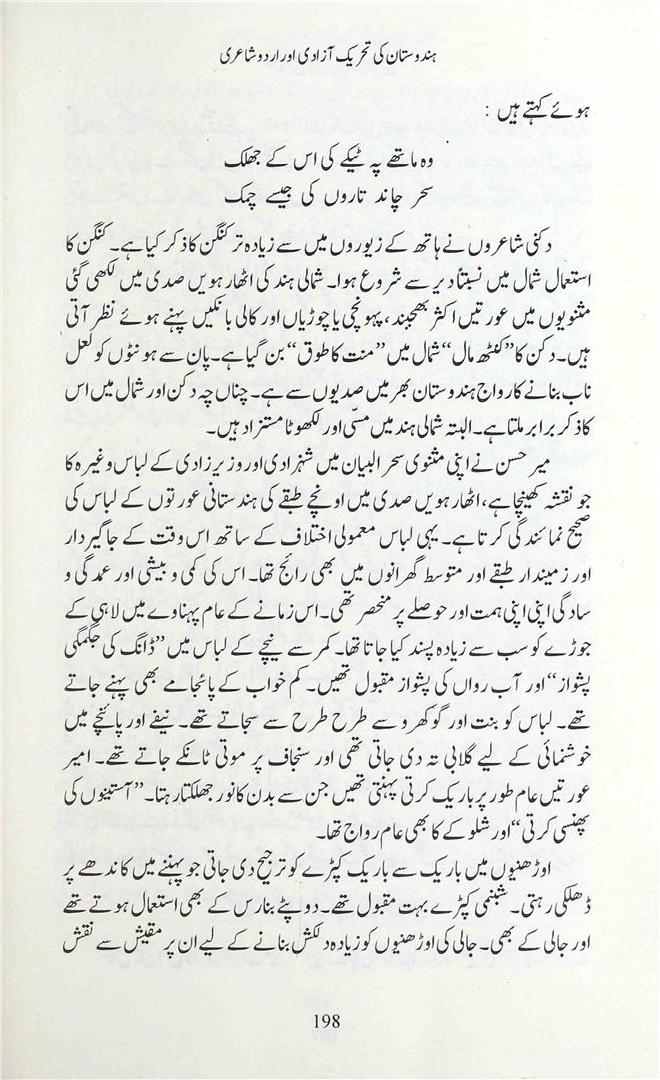 ہندوستان کی تحریک آزادی اور اردو شاعری
ہوئے کہتے ہیں :
وہ ماتھے پہ ٹیکے کی اس کے جھلک
سحر چاند تاروں کی جیسے چمک
دکنی شاعروں نے ہاتھ کے زیوروں میں سے زیادہ تر کنگن کا ذکر کیا ہے۔ کنگن کا
استعمال شمال میں نسبتاً دیر سے شروع ہوا۔ شمالی ہند کی اٹھارھویں صدی میں لکھی گئی
مثنویوں میں عورتیں اکثر بھجبند، پہونچی یا چوڑیاں اور کالی بانکیں پہنے ہوئے نظر آتی
ہیں۔ دکن کا ”کنٹھ مال“ شمال میں ”منت کا طوق“ بن گیا ہے۔ پان سے ہونٹوں کو لعل
ناب بنانے کا رواج ہندوستان بھر میں صدیوں سے ہے۔ چناں چہ دکن اور شمال میں اس
کا ذکر برابر ملتا ہے۔ البتہ شمالی ہند میں مسّی اور لکھوٹا مستزاد ہیں۔
میر حسن نے اپنی مثنوی سحر البیان میں شہزادی اور وزیر زادی کے لباس وغیرہ کا
جو نقشہ کھینچا ہے، اٹھارھویں صدی میں اونچے طبقے کی ہندستانی عورتوں کے لباس کی
صحیح نمائندگی کرتا ہے۔ یہی لباس معمولی اختلاف کے ساتھ اس وقت کے جاگیردار
اور زمیندار طبقے اور متوسط گھرانوں میں بھی رائج تھا۔ اس کی کمی و بیشی اور عمدگی و
سادگی اپنی اپنی ہمت اور حوصلے پر منحصر تھی۔ اس زمانے کے عام پہناوے میں لاہی کے
جوڑے کو سب سے زیادہ پسند کیا جاتا تھا۔ کمر سے نیچے کے لباس میں ”ڈانگ کی جگمگی
پشواز“ اور آب رواں کی پشواز مقبول تھیں۔ کم خواب کے پائجامے بھی پہنے جاتے
تھے۔ لباس کو بنت اور گوکھرو سے طرح طرح سے سجاتے تھے۔ نیفے اور پائنچے میں
خوشنمائی کے لیے گلابی تہ دی جاتی تھی اور سنجاف پر موتی ٹانکے جاتے تھے۔ امیر
عورتیں عام طور پر باریک کرتی پہنتی تھیں جن سے بدن کا نور جھلکتا رہتا۔ ”آستینوں کی
پھنسی کرتی“ اور شلوکے کا بھی عام رواج تھا۔
اوڑھنیوں میں باریک سے باریک کپڑے کو ترجیح دی جاتی جو پہننے میں کاندھے پر
ڈھلکی رہتی۔ شبنمی کپڑے بہت مقبول تھے۔ دوپٹے بنارس کے بھی استعمال ہوتے تھے
اور جالی کے بھی۔ جالی کی اوڑھنیوں کو زیادہ دلکش بنانے کے لیے ان پر مقیش سے نقش
198